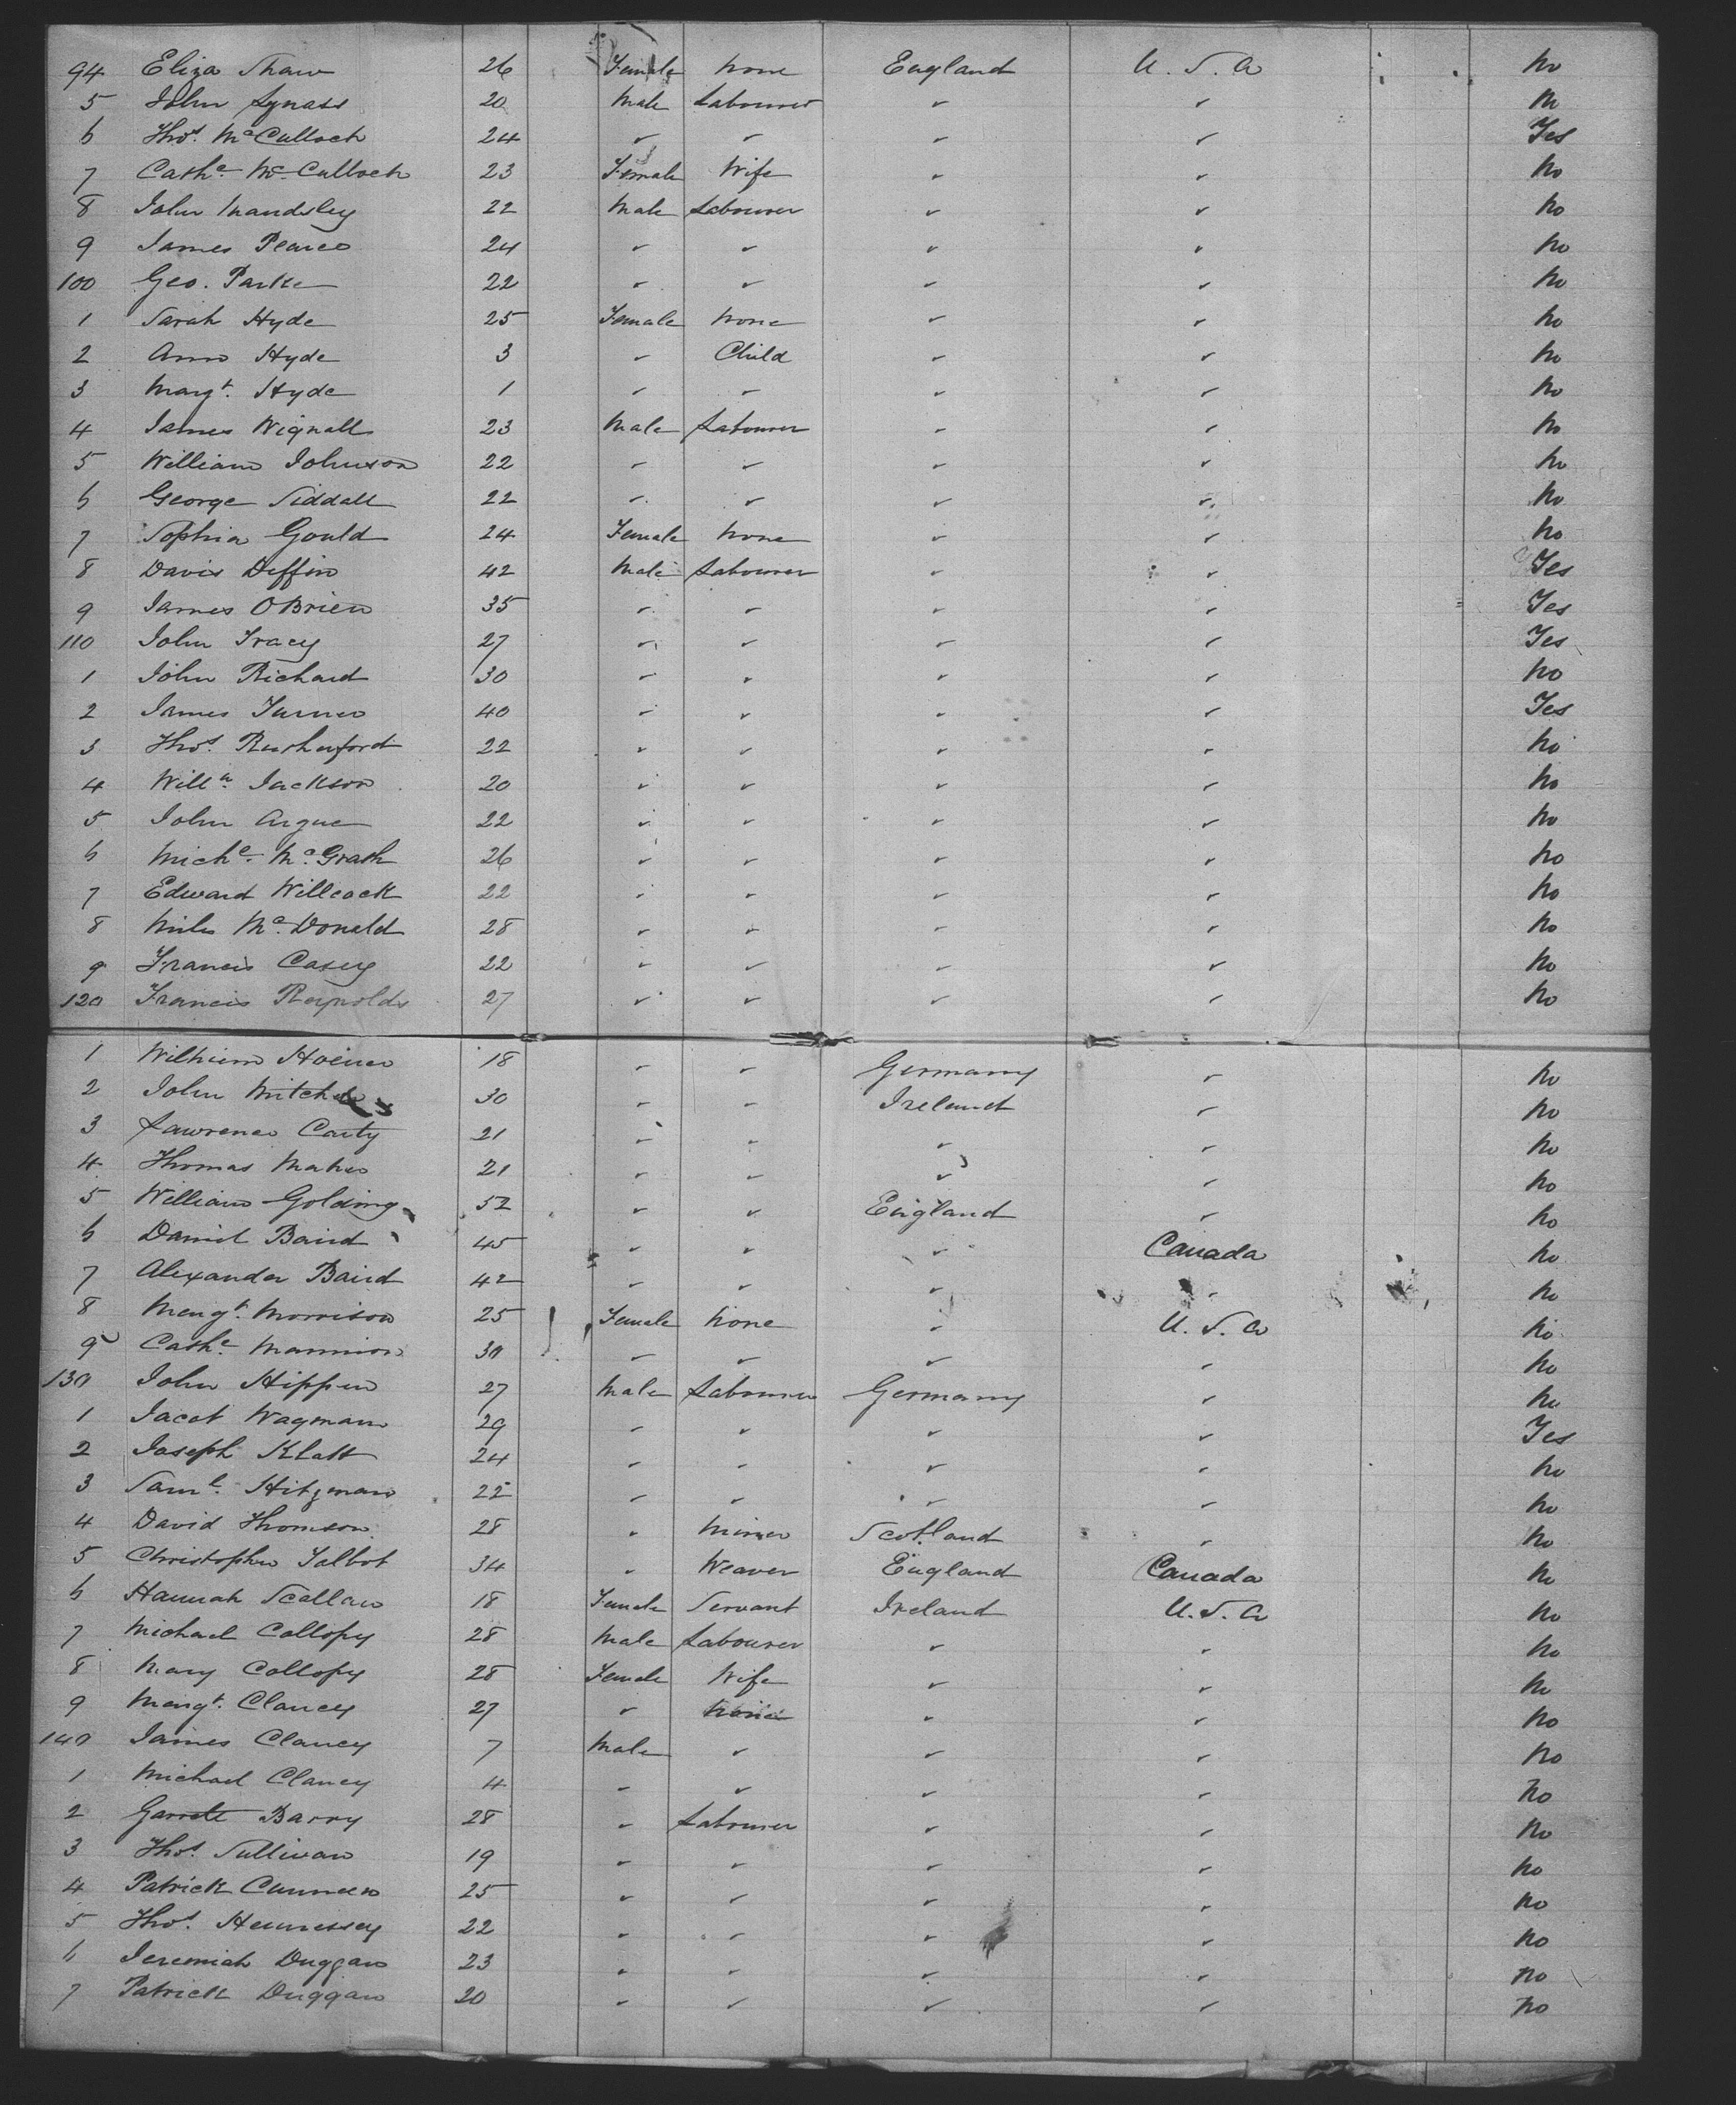 94 Eliza Shaw 26 Female None England U.S.A No
5 John Lynass 20 Male Labourer " " No
6 Thos. McCulloch 24 " " " " Yes
7 Cathe. McCulloch 23 Female Wife " " No
8 John Mandsley 22 Male Labourer " " No
9 James Pearce 24 " " " " No
100 Geo. Parke 22 " " " " No
1 Sarah Hyde 25 Female None " " No
2 Ann Hyde 3 " Child " " No
3 Margt. Hyde 1 " " " " No
4 James Wignall 23 Male Labourer " " No
5 William Johnson 22 " " " " No
6 George Siddall 22 " " " " No
7 Sophia Gould 24 Female None " " No
8 Davis Deffin 42 Male Labourer " " Yes
9 James OBrien 35 " " " " Yes
110 John Tracy 27 " " " " Yes
1 John Richard 30 " " " " No
2 James Turner 40 " " " " Yes
3 Thos. Rutherford 22 " " " " No
4 Willm. Jackson 20 " " " " No
5 John Argue 22 " " " " No
6 Miche. McGrath 26 " " " " No
7 Edward Willcock 22 " " " " No
8 Miles McDonald 28 " " " " No
9 Francis Casey 22 " " " " No
120 Francis Reynolds 27 " " " " No
1 Wilhiem 18 " " Germany " No
2 John 30 " " Ireland " No
3 Lawrence Carty 21 " " " " No
4 Thomas Maher 21 " " " " No
5 William Golding 52 " " England " No
6 Daniel Baird 45 " " " Canada No
7 Alexander Baird 42 " " " " No
8 Margt. Morrison 25 Female None " U.S.A No
9 Cathe. Mannion 30 " " " " No
130 John Hippen 27 Male Labourer Germany " No
1 Jacob Wagman 29 " " " " Yes
2 Joseph Klatt 24 " " " " No
3 Saml. Hitzman 22 " " " " No
4 David Thomson 28 " Miner Scotland " No
5 Christopher Talbot 34 " Weaver England Canada No
6 Hannah Scallan 18 Female Servant Ireland U.S.A No
7 Michael Collopy 28 Male Labourer " " No
8 Mary Collopy 28 Female Wife " " No
9 Margt. Clancy 27 " None " " No
140 James Clancy 7 Male " " " No
1 Michael Clancy 4 " " " " No
2 Garrett Barry 28 " Labourer " " No
3 Thos. Sullivan 19 " " " " No
4 Patrick Cunneen 25 " " " " No
5 Thos. Hennessey 22 " " " " No
6 Jeremiah Duggan 23 " " " " No
7 Patrick Duggan 20 " " " " No